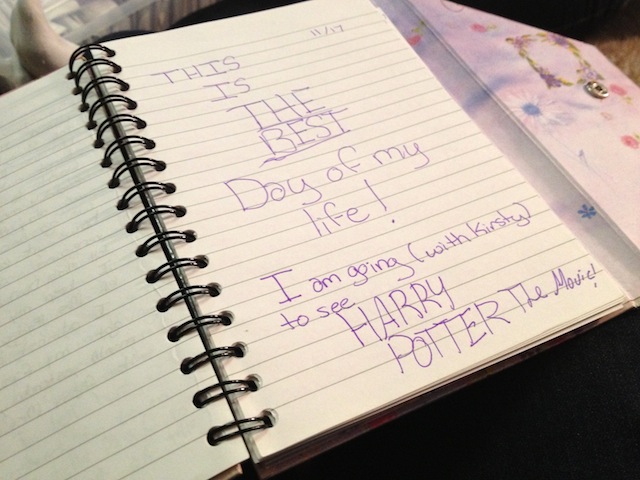 11/17
THIS
IS
THE
BEST
Day of my
life!
I am going (with Kirsty)
to see HARRY
POTTER The Movie!